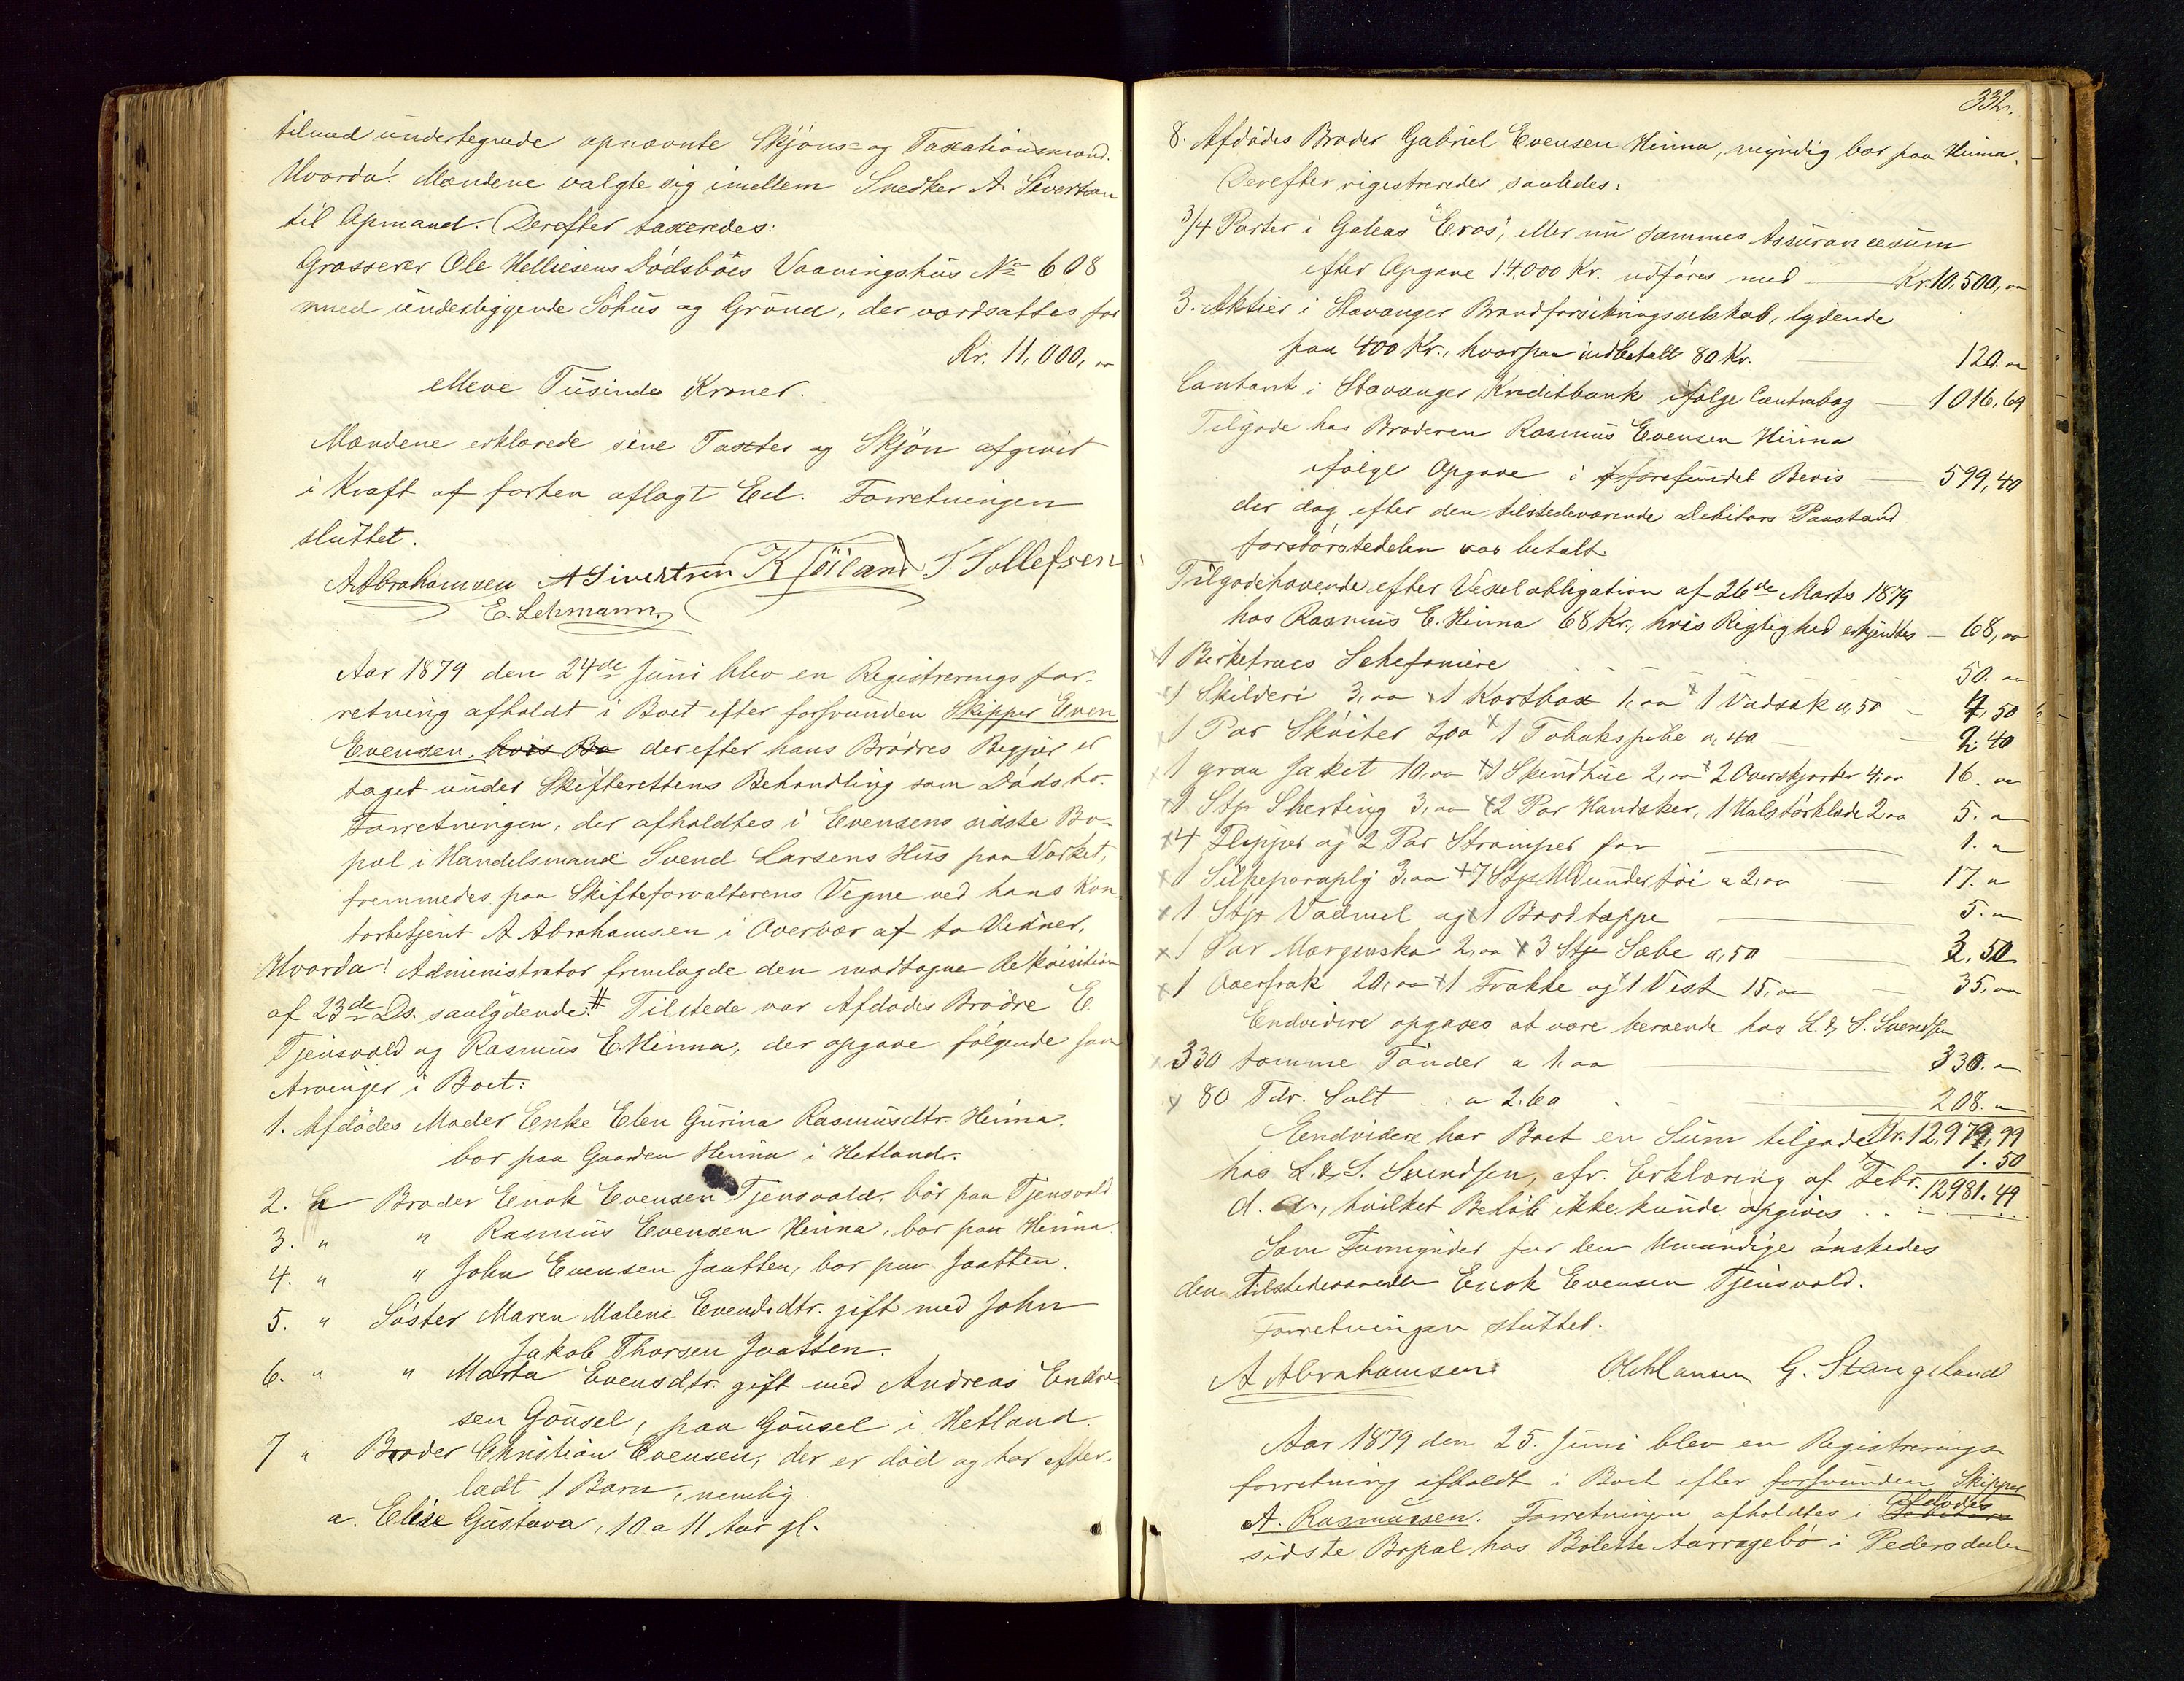 tilmed undertegnede opnævnte Skjöns- og Taxationsmænd.
Hvorda! Mændene valgte sig imellem Snedker A Sivertsen
til Opmand. Derefter taxeredes:
Grosserer Ole Helliesens Dödsböes Vaaningshus No 608
med underliggende Söhus og Grund, der værdsattes for
Kr. 11,000, oo
elleve Tusinde Kroner.
Mændene erklærede sine Taxter og Skjön afgivet
i Kraft af forhen aflagt Ed. Forretningen
sluttet.
A Abrahamsen A Sivertsen K Jöiland T Tollefsen
E. Lehmann.
Aar 1879 den 24de Juni blev en Registreringsfor-
retning afholdt i Boet efter forsvunden Skipper Even
Evensen. hvis Bo derefter hans Brödres Begjær er
taget under Skifterettens Behandling som Dödsbo.
Forretningen, der afholdtes i Evensens sidste Bo-
pæl i Handelsmand Svend Larsens Hus paa Værket,
fremmedes paa Skifteforvalterens Vegne ved hans Kon-
torbetjent A Abrahamsen i Overvær af to Vidner.
Hvorda! Administrator fremlagde den modtagne Rekvisition
af 23de Ds. saalydende: # Tilstede var Afdödes Brödre E.
Tjensvold og Rasmus E. Hinna, der opgave fölgende som
Arvinger i Boet:
1. Afdödes Moder Enke Elen Gurina Rasmusdtr. Hinna.
bor paa Gaarden Hinna i Hetland.
2. " Broder Enok Evensen Tjensvold, bor paa Tjensvold.
3. " " Rasmus Evensen Hinna, bor paa Hinna.
4. " " John Evensen Jaatten, bor paa Jaatten.
5. " Söster Maren Malene Evensdtr. gift med John
Jakob Thorsen Jaatten.
6. " " Marta Evensdtr. gift med Andreas Endre-
sen Gousel, paa Gousel i Hetland.
7 " Broder Christian Evensen, der er död og har efter-
ladt 1 Barn, nemlig
a. Elise Gustava, 10 a 11 Aar gl.
332.
8. Afdödes Broder Gabriel Evensen Hinna, myndig bor paa Hinna.
Derefter registreredes saaledes:
3/4 Parter i Galeas "Eros", eller nu sammes Assurancesum
efter Opgave 14,000 Kr. udföres med Kr. 10,500, oo
3. Aktier i Stavanger Brandforsikringsselskab, lydende
paa 400 Kr., hvorpaa indbetalt 80 Kr. 120. oo
Contant i Stavanger Kreditbank ifölge Contrabog 1016,69
Tilgode hos Broderen Rasmus Evensen Hinna
ifölge Opgave i forefundet Bevis 599,40
der dog efter den tilstedeværende Debitors Paastand
forstörstedelen var betalt.
Tilgodehavende efter Vexelobligation af 26de Marts 1879
hos Rasmus E. Hinna 68 Kr., hvis Rigtighed erkjendtes 68, oo
1 Birketræes Schefoniere 50. oo
1 Skilderi 3, oo 1 Kortbox 1, oo 1 Vadsæk o, 50 4, 50
1 Par Sköiter 2, oo 1 Tobakspibe o, 40 2. 40
1 graa Jaket 10, oo 1 Skindhue 2, oo 2 Overskjorter 4, oo 16. oo
1 Stp Sherting 3, oo 2 Par Handsker, 1 Halstörklæde 2 oo 5. oo
4 Flipper og 2 Par Strömper for 1. oo
1 Silkeparaply 3, oo 7 Stp Uldundertöi a 2, oo 17. oo
1 Stp Vadmel og 1 Brodtæppe 5. oo
1 Par Morgensko 2, oo 3 Stp Sæbe o, 50 3,50
1 Overfrak 20, oo 1 Frakke og 1 Vest 15, oo 35, oo
Endvidere opgaves at være beroende hos L. & S. Svendsen
330 tomme Tönder a 1. oo 330. oo
80 Tdr. Salt a 2. 60 208. oo
Endvidere har Boet en Sum tilgode Kr. 12,979,99
1. 50
hos L. & S. Svendsen, cfr. Erklæring af Febr. 12981. 49
d. A., hvilket Belöb ikke kunde opgives
Som Formynder for den Umyndige önskedes
den tilstedeværende Enok Evensen Tjensvold.
Forretningen sluttet.
A Abrahamsen G. Stangeland
Aar 1879 den 25. Juni blev en Registrerings-
forretning afholdt i Boet efter forsvunden Skipper
A. Rasmussen. Forretningen afholdtes i Afdödes
sidste Bopæl hos Bolette Aarragebö i Pedersdalen